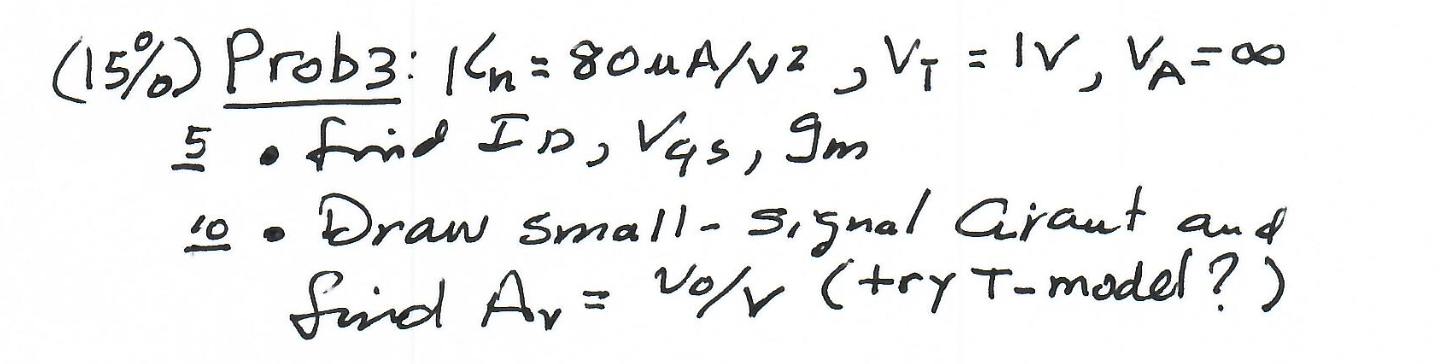 (15%) Prob3: Kn = 80uA/V², VT = 1V, VA=∞
5 • find ID, VGS, gm
10 • Draw small-signal Circuit and
find Av = vo/v (try T-model?)